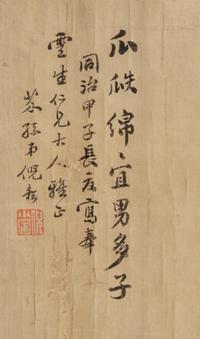 瓜瓞綿〻宜男多子
同治甲子長夏寫奉
雲生仁兄大人雅正
墨耕弟倪耘